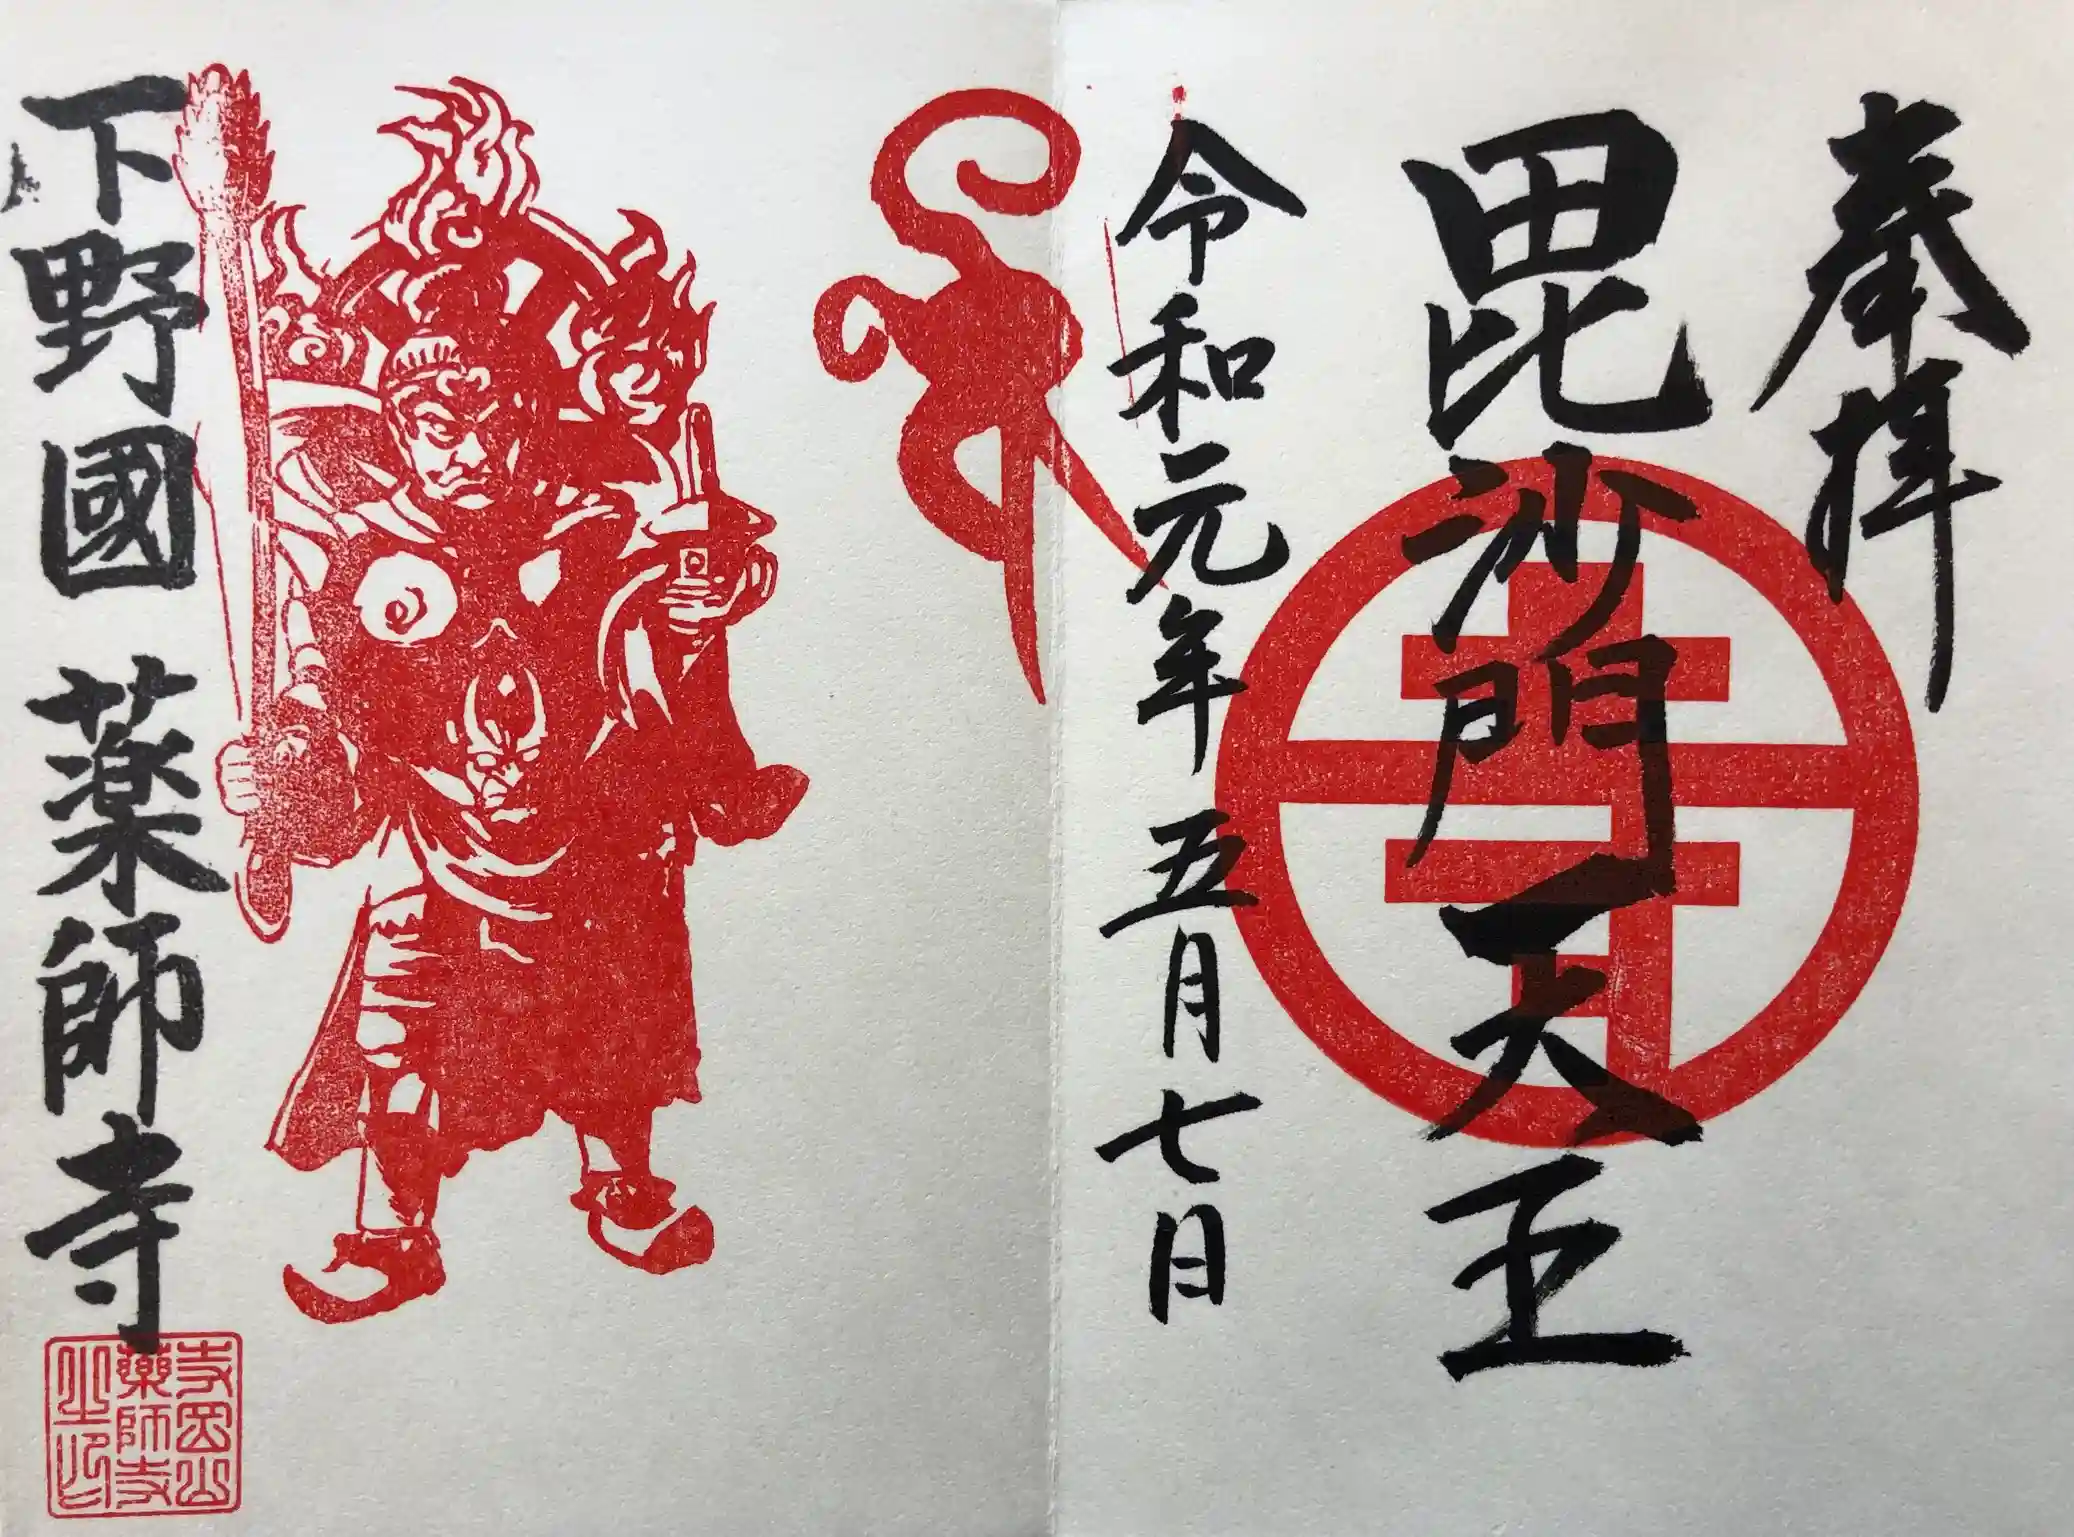 奉拝
毘沙門天王
令和元年五月七日
下野國薬師寺
寺岡山
藥師寺
之印